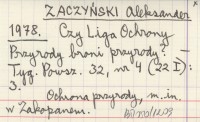 ZACZYŃSKI Aleksander
1978. Czy Liga Ochrony
Przyrody broni przyrody? -
Tyg. Powsz. 32, nr 4 (22 I):
3.
Ochrona przyrody, m.in.
w Zakopanem.